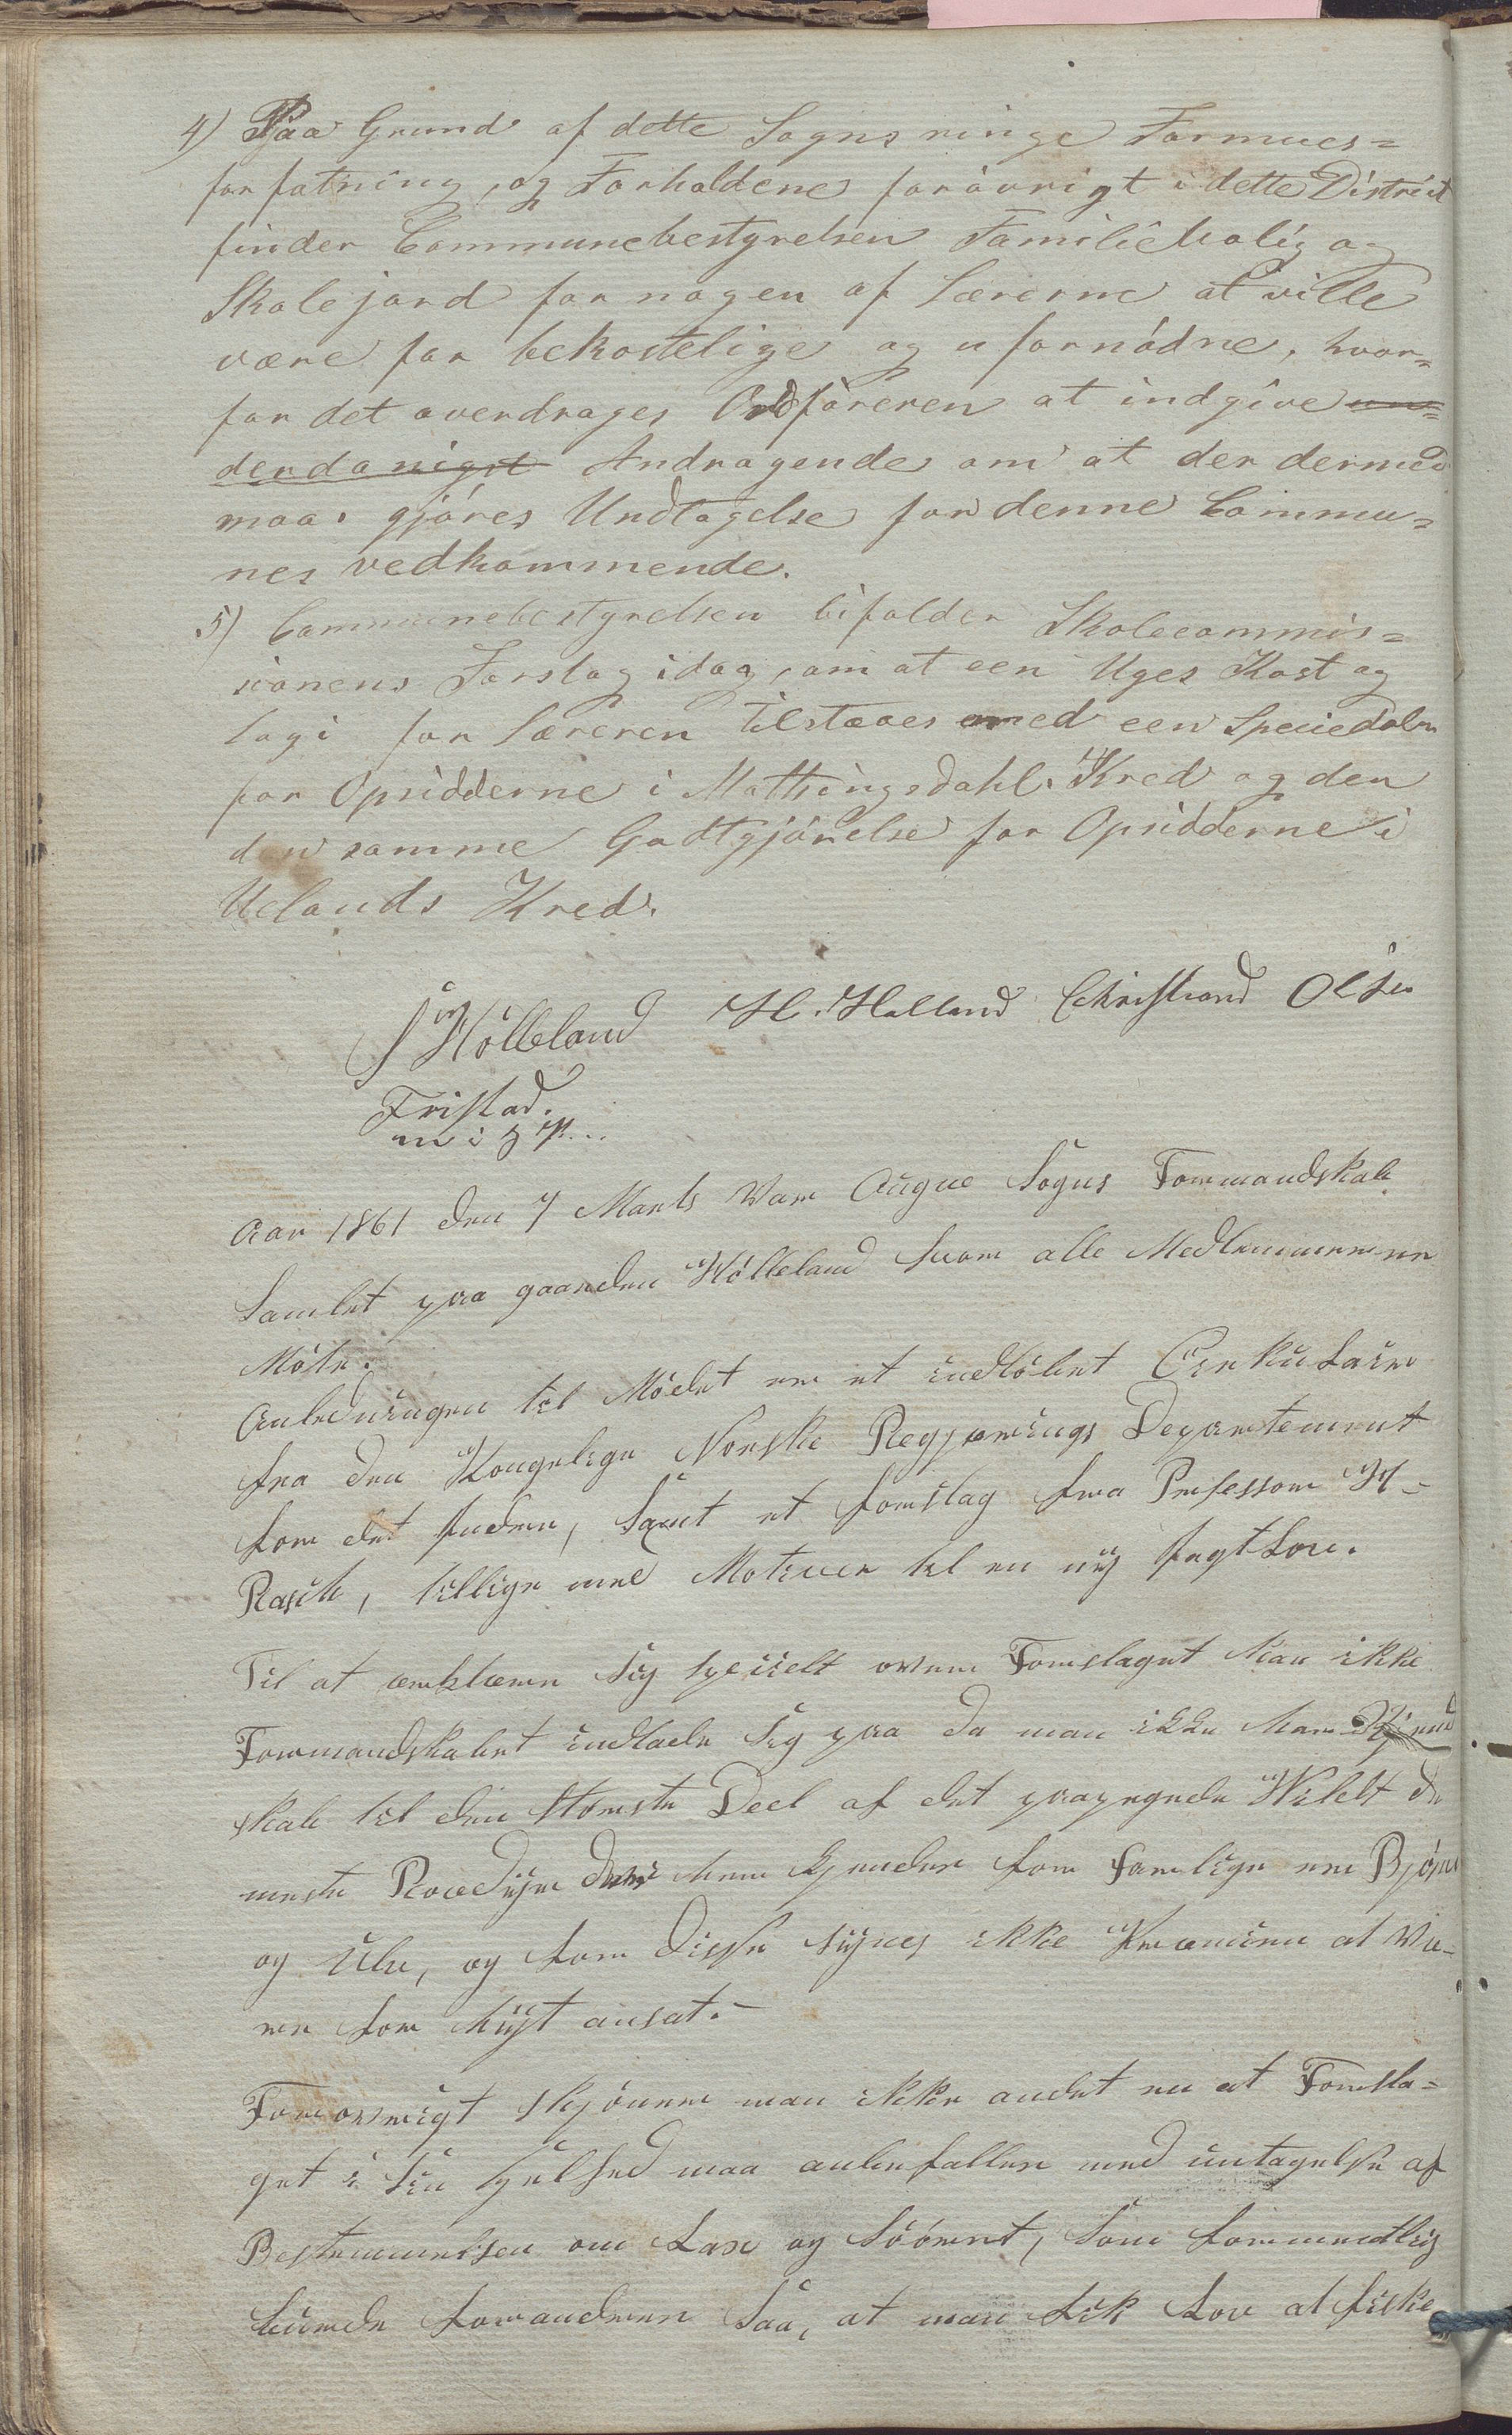 4) Paa Grund af dette Sogns ringe Formues=
forfatning, og Forholdene forøvrigt i dette District
finder Communebestyrelsen Familiebolig og
Skolejord for nogen af Lærerne at ville
være for bekostelige og ufornødne, hvor=
for det overdrages Ordføreren at indgive un=
derdanigst Andragende om at der dermed
maa gjøres Undtagelse for denne Commu=
nes vedkommende.
5) Communebestyrelsen bifalder Skolecommis=
sionens Forslag idag, om at een Uges Kost og
logi for Læreren tilstaaes med een Speciedaler
for Opsidderne i Mathingsdahl Kred og den
den samme Godtgjørelse for Opsidderne i
Uelands Kred.
Hølleland H. Helland Christiand Olsen
Fristad.
Aar 1861 den 7 Marts var Augne Sogns Formandskab
Samlet paa gaarden Hølleland hvor alle Medlemmerne
Møtte.
Anledningen til Mødet er et indløbet Cirkulaire
fra den Kongelige Norske Regjerings Departement
for det Indere, Samt et forslag fra Professor H
Rasch, tillige med Motiver til en nÿ Jagtlov.
Til at erklære sig specielt over Forslaget kan ikke
Formandskabet indlade sig paa da man ikke har Kjend
skab til den største Deel af det paapegede Vildt de
meste Rovdÿr der her kjendes for farlige er Bjørne
og Ulv, og for disse sÿnes ikke Præmien at væ-
re for høÿt ansat.-
Forøvrigt skjønner man ikke andet en at Forsla=
get i sin Helhed maa anbefalles med untagelse af
Bestemmelsen om Lax og Søørret, som formentlig
burde forandres saa, at man fik Lov at fiske